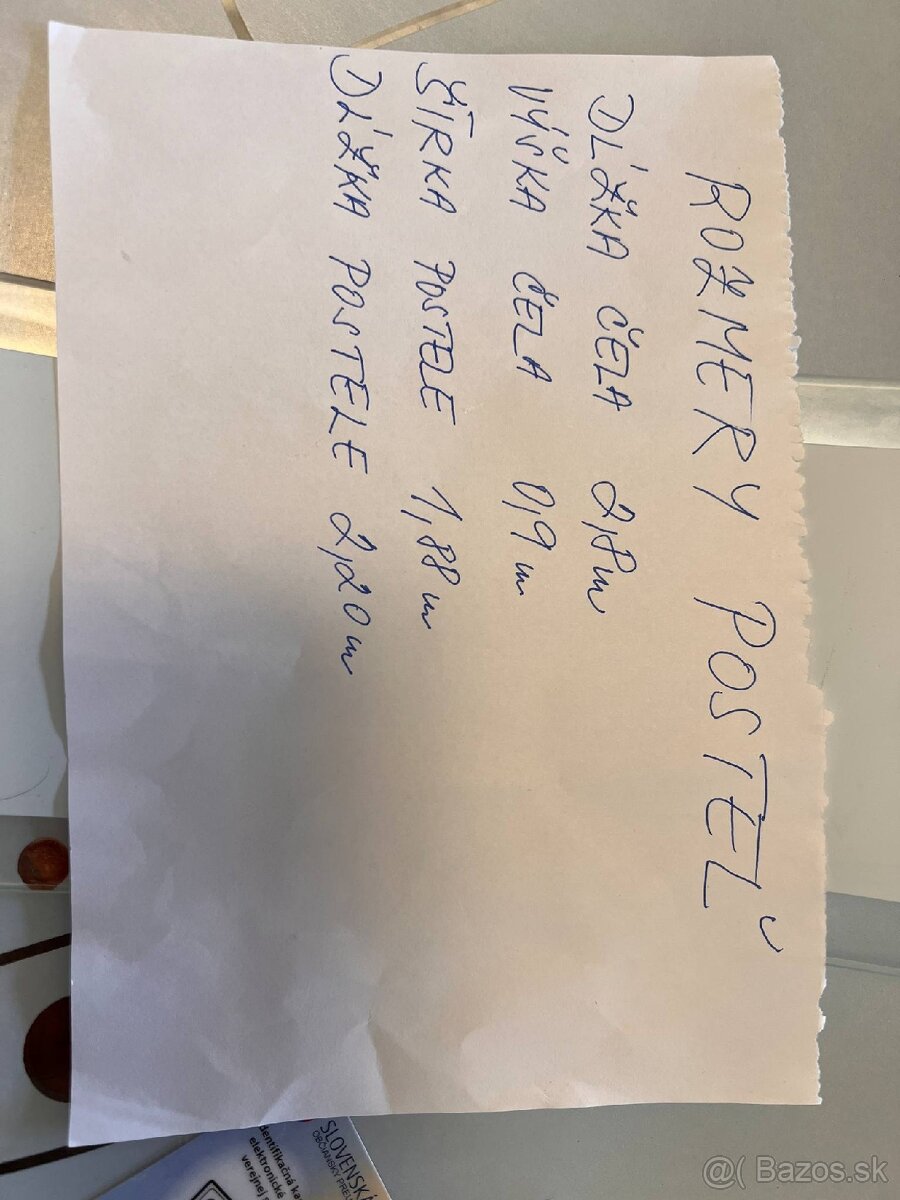 ROZMERY POSTEĽ
DĹŽKA ČELA 2,8m
VÝŠKA ČELA 0,9m
ŠÍRKA POSTELE 1,88m
DĹŽKA POSTELE 2,20m
SLOVENSKÁ
OBČIANSKY
identifikačná
elektronické
verejnej
@( Bazos.sk